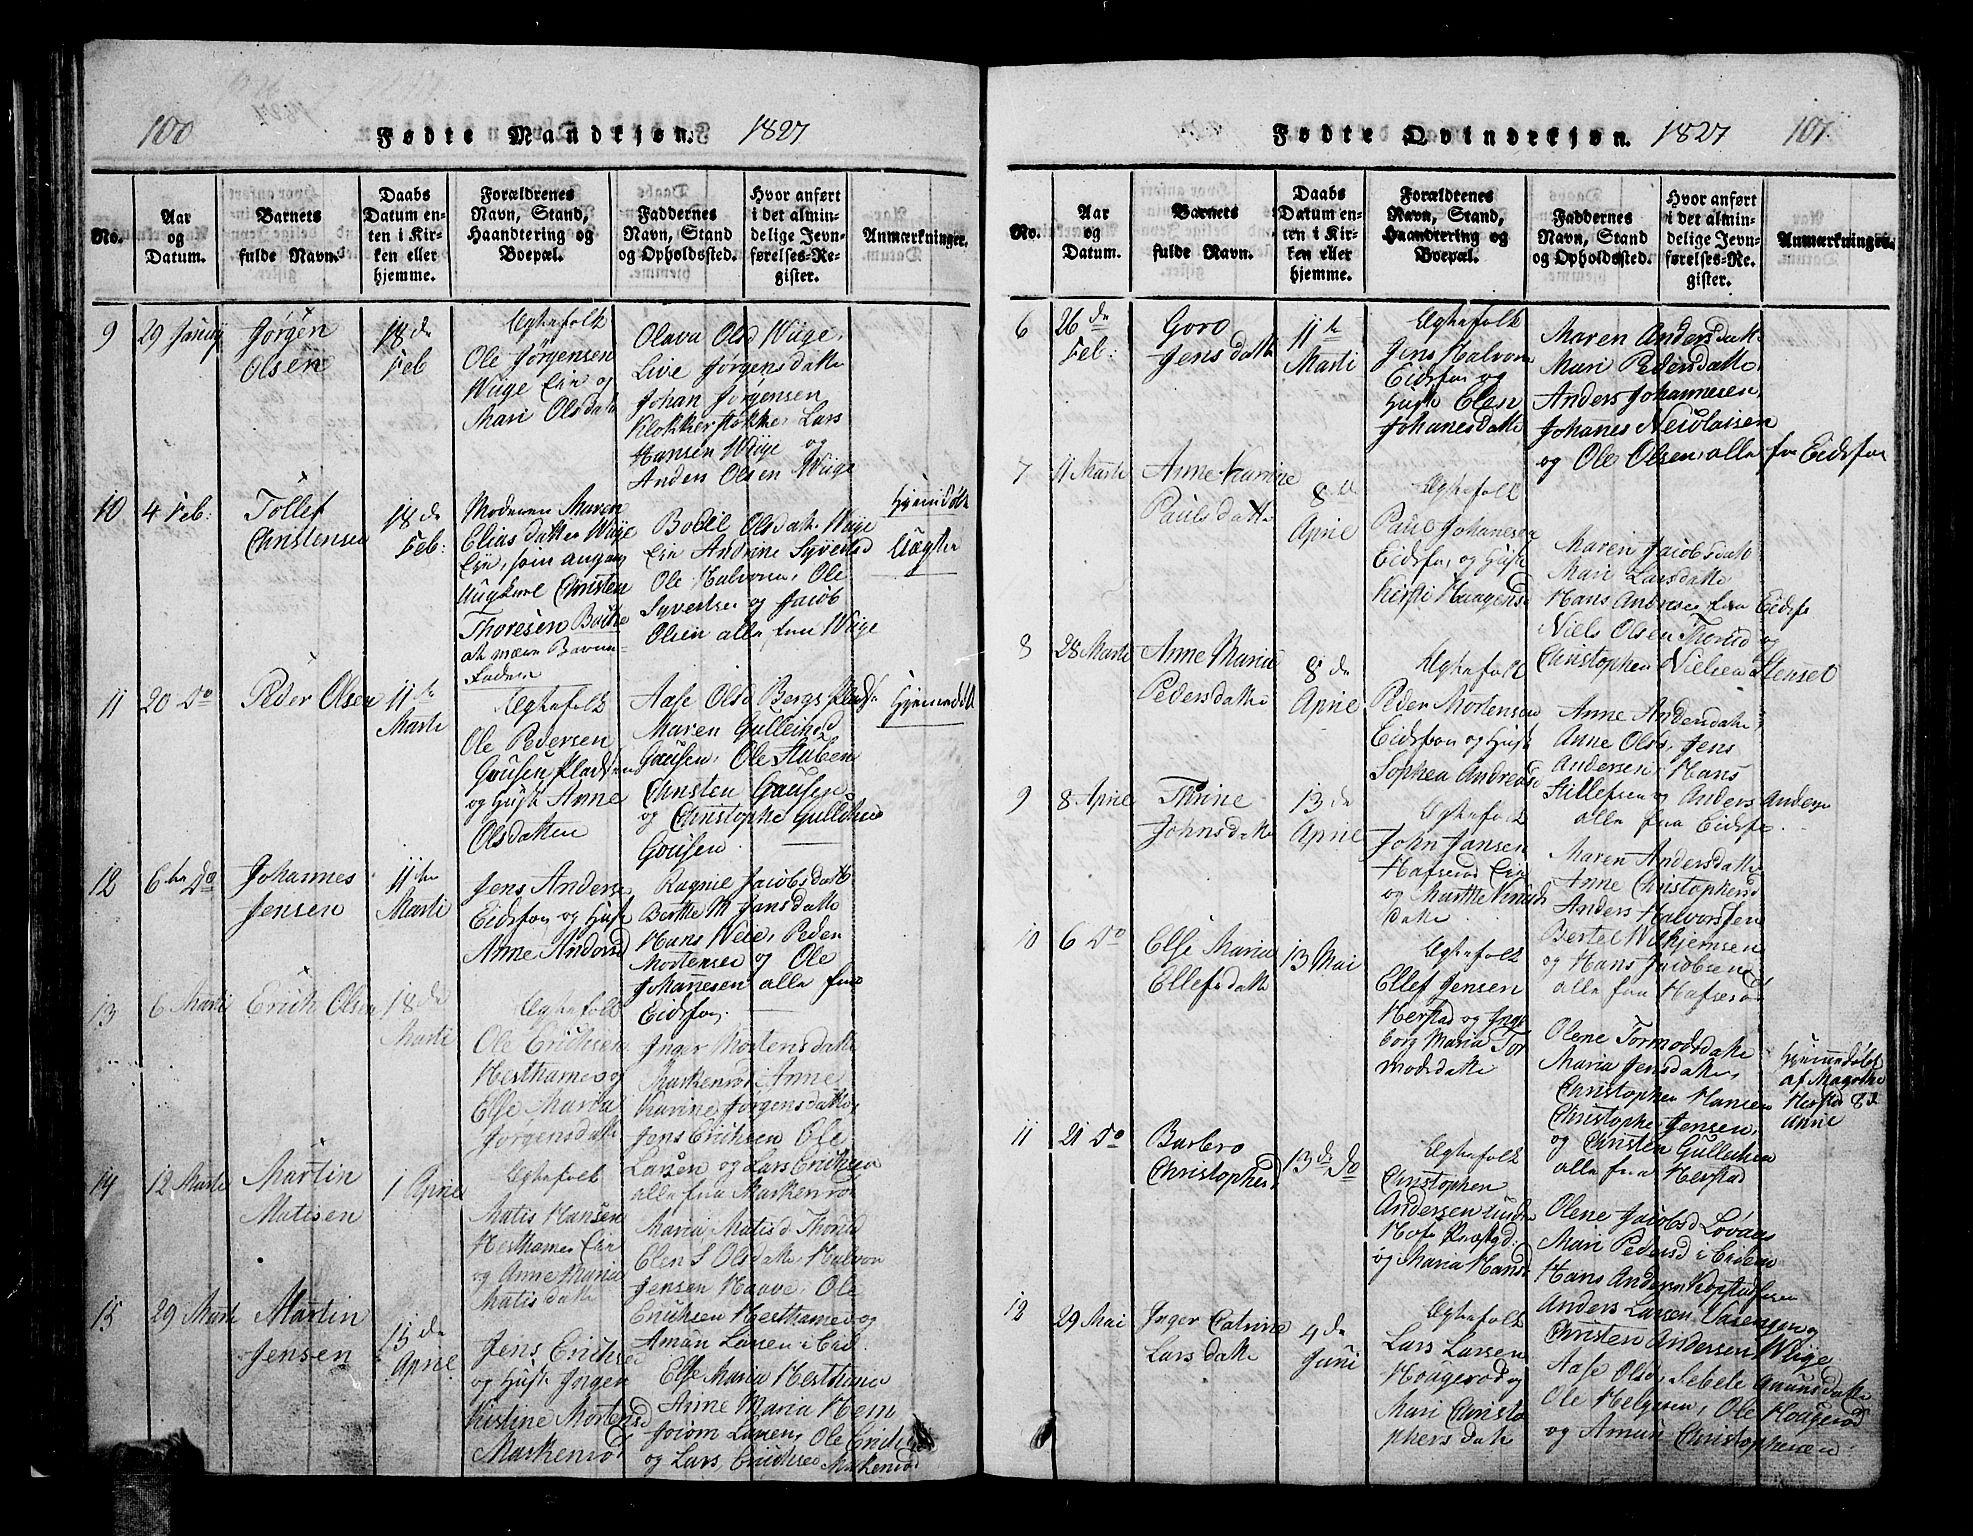 100
Fødte Mandkjøn. 1827
No.
Aar
og
Datum.
Barnets
fulde Navn.
Daabs
Datum en-
ten i Kir-
ken eller
hjemme.
Forældrenes
Navn, Stand,
Haandtering og
Boepæl.
Faddernes
Navn, Stand
og Opholdssted.
Hvor anført
i det almin-
delige Jevn-
førelses-Re-
gister.
Anmærkninger.
9
29 Januj
Jørgen
Olsen
18 de
Feb
Ægtefolk
Ole Jørgensen
Wiige Eie og
Mari Olsdatt
Olava Olsd Wiige,
Live Jørgensdatte
Johan Jørgensen
Klokkerstokke, Lars
Hansen Wiige og
Anders Olsen Wiige
10
4 Feb:
Tollef
Christensen
18 de
Feb:
Moderen Maren
Elias datter Wiige
Eie, som angav
Christen
Thoresen
at være Barne-
Fader
Bodil Olsdatt Wiige
Eie Andrine Syvertsd
Ole Halvorsen, Ole
Syvertsen og Jacob
Olsen alle fra Wiige
Hjemmedøbt
Uægte
11
20 Do
Peder Olsen
11 te
Marti
Ægtefolk
Ole Pedersen
Gousen Pladsen
og Hust Anne
Olsdatten
Aase Olsd Bergs Pladse
Maren Gulleiksd
Gausen, Ole Stuben
Christen Gausen
og Christophe Gulliksen
Gousen
Hjemmedøbt
12
6 te Do
Johannes
Jensen
11 te
Marti
Jens Anderse
Eidsfos og Hust
Anne Andersd
Ragnil Jacobsdatte
Berthe M Jansdatte
Hans Veie, Peder
Mortensen og Ole
Johannesen alle fra
Eidsfos.
13
6 Marti
Erich Olsen
18 de
Marti
Ægtefolk
Ole Erichsen
Hesthamer og
Else Maria
Jørgensdatt
Inger Mortensdatte
Markenrør, Anne
Karine Jørgensdatte,
Jens Erichsen Ole
Larsen og Lars Erichsen
alle fra Markenrør
14
12 Marti
Martin
Matisen
1 Aprie
Ægtefolk
Matis Hansen
Hesthamer Eie
og Anne Maria
Matisdatte
Maria Matisd
Elen S Olsdatte, Halvor
Jensen Haave, Ole
Erichsen Hesthamer og
Amun Larsen i Eid
15
29 Marti
Martin
Jensen
15 de
Aprie
Jens Erichsen
og Hust Jørgen
Kirstine Mortensd
Markenrør
Else Maria Hesthamer
Anne Maria Hem
Joiom Larsen, Ole Erich
og Lars Erichsen Markenrød
Fødte Qvindekjøn. 1827
101
No.
Aar
og
Datum.
Barnets
fulde Navn.
Daabs
Datum en-
ten i Kir-
ken eller
hjemme.
Forældrenes
Navn, Stand,
Haandtering og
Boepæl.
Faddernes
Navn, Stand
og Opholdssted.
Hvor anført
i det almin-
delige Jevn-
førelses-Re-
gister.
Anmærkninger.
6
26 de
Feb:
Goro
Jensdatte
11 te
Marti
Ægtefolk
Jens Halvorse
Eidsfos og
Hust Elen
Johanesdatte
Maren Andersdatte
Mari Pedersdatte,
Anders Johannesen,
Johanes Nicolaisen
og Ole Olsen, alle fra Eidsfos
7
11 Marti
Anne Karine
Paulsdatte
8 de
Aprie
Ægtefolk
Paul Johanesen
Eidsfos, og Hust
Kirsti Haagensd
Maren Jacobsdatt
Mari Larsdatte
Hans Andresen fra Eidsfos
Niels Olsen Thorud og
Christopher Nielsen Stenset
8
28 Marti
Anne Maria
Pedersdatte
8 de
Aprie
Ægtefolk
Peder Mortensen
Eidsfos og Hust
Sophea Andreasd
Anne Andersdatte
Anne Olsd, Jens
Andersen, Hans
Stillefsen og Anders Anderse
alle fra Eidsfos.
9
8 Aprie
Thrine
Johnsdatte
13 de
Aprie
Ægtefolk
John Jansen
Hafserød Eie
og Marthe Knuds
datte
Maren Andersdatte
Anne Christophersd
Anders Halvorssen
Bertel Wilhjemsen
og Hans Jacobsen
alle fra Hafserød
10
6 Do
Else Maria
Ellefsdatte
13 Mai
Ægtefolk
Ellef Jensen
Herstad og Inge
borg Maria Tor
modsdatte
Olene Tormodsdatte
Maria Jensdatte,
Christopher Hansen
Christophe Jensen,
og Christen Gulliksen
alle fra Herstad
Hjemmedøbt
af
Herstad 8 de
Aprie
11
21 Do
Barbro
Christophersd
13 de Do
Ægtefolk
Christopher
Andersen
Hofs Præstgd:
og Maria Hansd
Olene Jacobsd Lovaas
Mari Pedersd i Eideren
Hans Anderse
Anders Larsen, Vasengen og
Christen Andersen Wiige,
12
29 Mai
Inger Catrine
Larsdatte
4 de
Juni
Ægtefolk
Lars Larsen
Hougerød og
Mari Christo
phersdatte
Aase Olsd, Sebele Amunsdatte
Ole Helgesen, Ole Hougerød
og Amun Christophersen